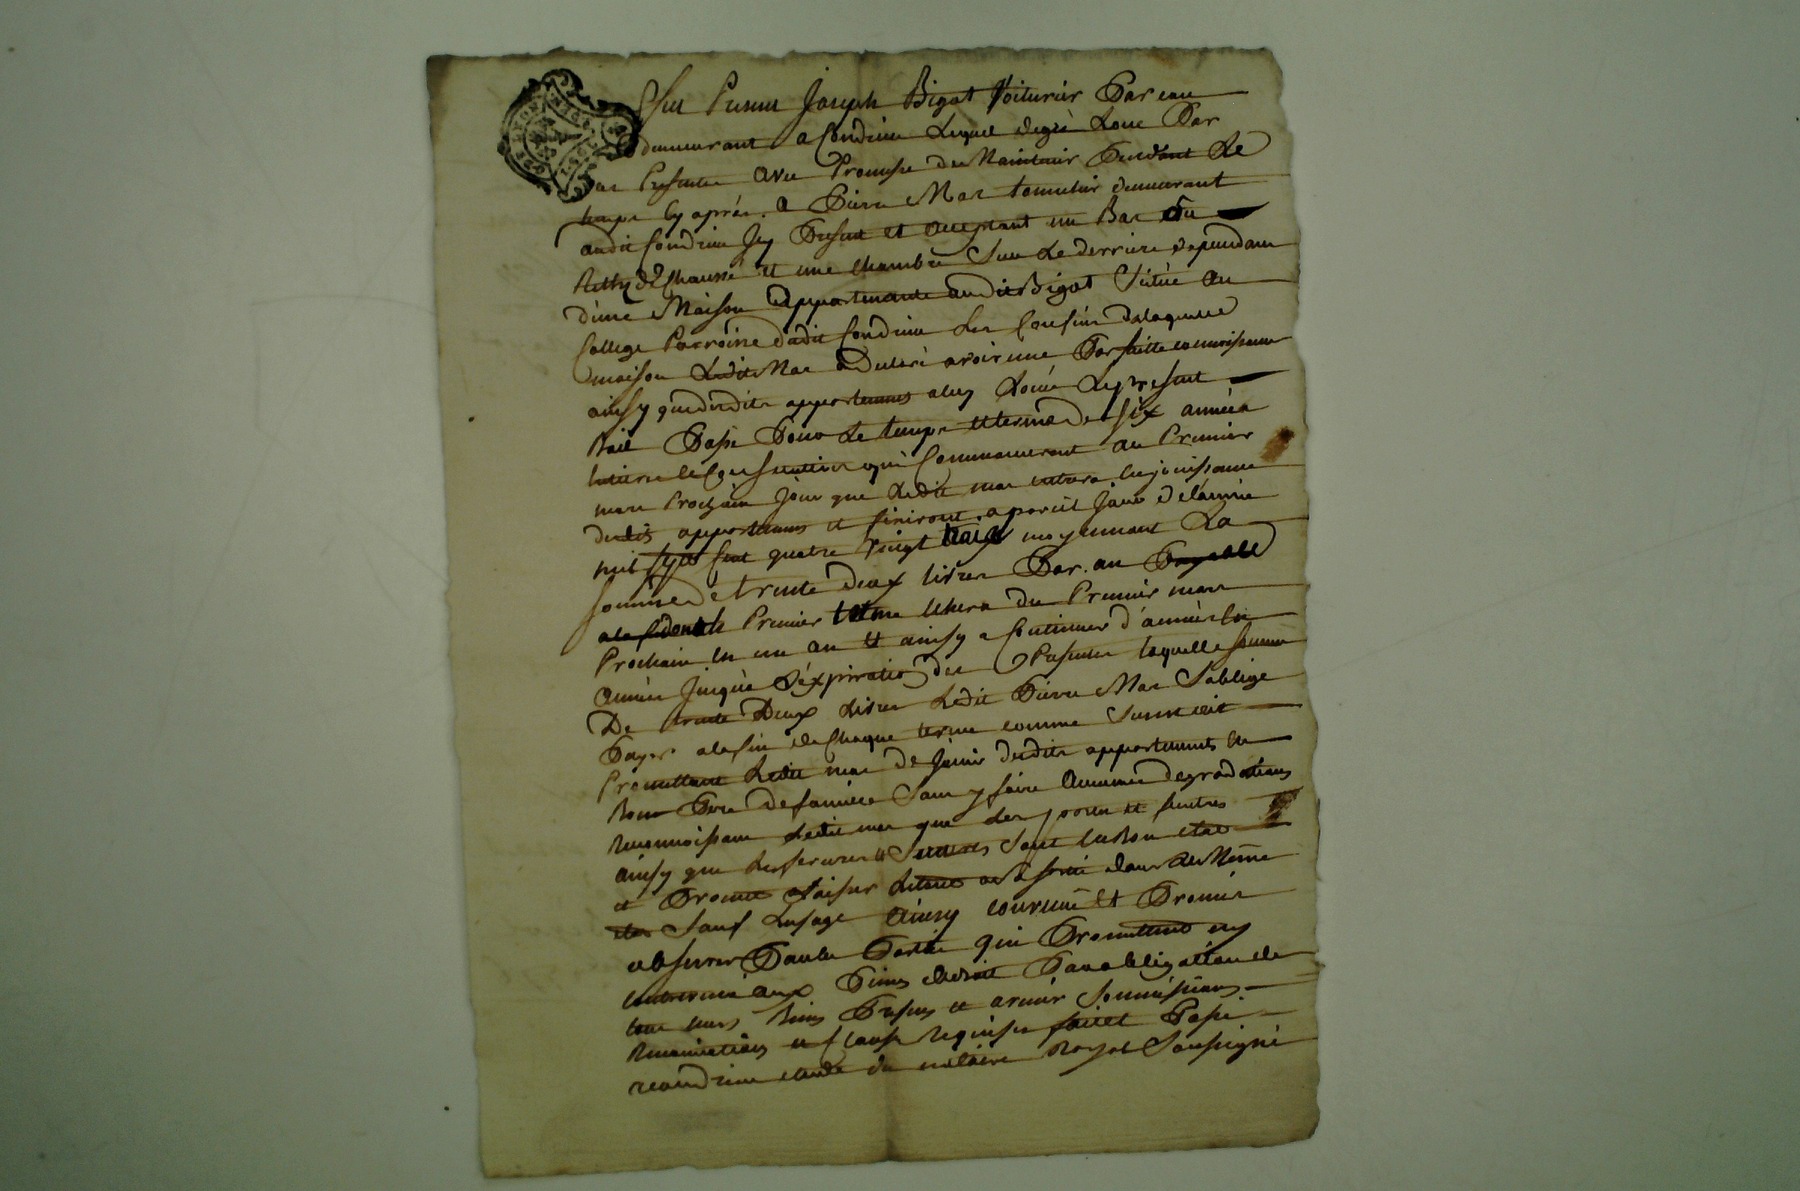 Fut Presen Joseph Bigot Voiturier Par eau
demeurant a Condrieu Lequel degré Loue Par
Ces Presentes avec Promesse de Maintenir Pendant Le
temps Cy après. a Pierre Mas tonnelier demeurant
audit Condrieu Icy Present et acceptant un Bas ou
Rethz de Chaussé et une Chambre Sur Le derriere dependant
d'une Maison appartenante audit Bigot Située au
College Parroisse dudit Condrieu des Confins de laquelle
maison Ledit Mas a declaré avoir une Parfaitte connoissance
ainsy que desdits appartements a luy Loués Le present
Bail Passé Pour Le temps et terme De Six années
entieres et Consecutives qui Commenceront au Premier
mars Prochain Jour que Ledit mas entrera en jouissance
desdits appartements et finiront a pareil Jour de l'année
mil sept cent quatre vingt moyennant La
Somme De trente deux livres Par an Payable
a la fin dont le Premier terme Echera du Premier mars
Prochain en un an et ainsy a Continuer d'années en
années Jusqu'a L'expiration des Presentes laquelle Somme
De trente Deux Livres Ledit Pierre Mas S'oblige
Payer a la fin de Chaque terme comme Susdit est
Promettant Ledit mas de Jouir desdits appartements en
bon Pere de famille Sans y faire Aucunes degradations
Reconnoissant Ledit mas que Les portes et fenetres
ainsy que Les ferrures et Serrures Sont en Bon etat
et Promet Laisser Le tout a sa Sortie dans Le Même
etat Sauf Lusage Ainsy convenu Et Promis
observer Par les Parties qui Promettent ny
Contrevenir aux Peines de droit Par obligation de
tous leurs biens Presens et avenir Soumissions
Renonciations et Clauses Requises fait et Passé
a Condrieu etude du notaire Royal Soussigné